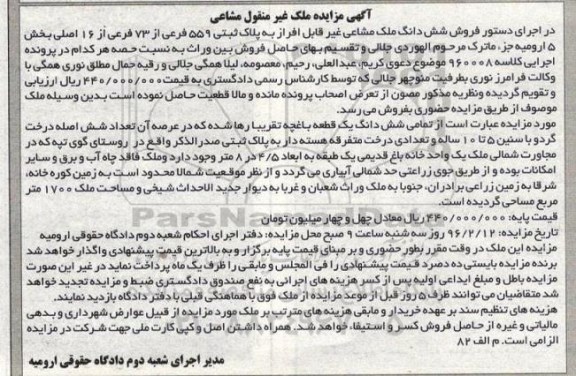 آگهی مزایده ملک غیر منقول مشاعی
در اجرای دستور فروش شش دانگ ملک مشاعی غیر قابل افراز به پلاک ثبتی ۵۵۹ فرعی از ۷۳ فرعی از ۱۶ اصلی بخش
۵ ارومیه جز، ماترک مرحوم الهوردی جلالی و تقسیم بهای حاصل فروش بین وراث به نسبت حصه هر کدام در پرونده
اجرایی کلاسه ۹۶۰۰۰۸ موضوع دعوی کریم، عبدالعلی، رحیم، معصومه، لیلا همگی جلالی و رقیه حمال مطلق نوری همگی با
وکالت فرامرز نوری بطرفیت منوچهر جلالی که توسط کارشناس رسمی دادگستری به قیمت ۴۴۰/۰۰۰/۰۰۰ ریال ارزیابی
و تقویم گردیده ونظریه مذکور مصون از تعرض اصحاب پرونده مانده و مالا قطعیت حاصل نموده است بدین وسیله ملک
موصوف از طریق مزایده حضوری بفروش می رسد.
مورد مزایده عبارت است از تمامی شش دانگ یک قطعه باغچه تقریبا رها شده که در عرصه آن تعداد شش اصله درخت
گردو با سنین ۵ تا ۱۰ ساله و تعدادی درخت متفرقه هسته دار به پلاک ثبتی صدر الذکر واقع در روستای گوی تپه که در
مجاورت شمالی ملک یک واحد خانه باغ قدیمی یک طبقه به ابعاد ۴/۵ در ۸ متر وجود دارد وملک فاقد چاه آب و برق و سایر
امکانات بوده و از طریق جوی زراعتی حد شمالی آبیاری می گردد و از نظر موقعیت شمالا محدود است به زمین کوره خانه،
شرقا به زمین زراعی برادران، جنوبا به ملک وراث شعبان و غربا به دیوار جدید الاحداث شیخی و مساحت ملک ۱۷۰۰ متر
مربع مساحی گردیده است.
قیمت پایه: ۴۴۰/۰۰۰/۰۰۰ ریال معادل چهل و چهار میلیون تومان
تاریخ مزایده: ۹۶/۲/۱۲ روز سه شنبه ساعت ۹ صبح محل مزایده: دفتر اجرای احکام شعبه دوم دادگاه حقوقی ارومیه
مزایده این ملک در وقت مقرر بطور حضوری و بر مبنای قیمت پایه برگزار و به بالاترین قیمت پیشنهادی واگذار خواهد شد
برنده مزایده بایستی ده درصد قیمت پیشنهادی را فی المجلس و مابقی را ظرف یک ماه پرداخت نماید در غیر این صورت
مزایده باطل و مبلغ ایداعی اولیه پس از کسر هزینه های اجرائی به نفع صندوق دادگستری ضبط و مزایده تجدید خواهد
شد متقاضیان می توانند ظرف ۵ روز قبل از موعد مزایده از ملک فوق با هماهنگی قبلی با دفتر دادگاه بازدید نمایند.
هزینه های تنظیم سند بر عهده خریدار و مابقی هزینه های مترتب بر ملک مورد مزایده از قبیل عوارض شهرداری و بدهی
مالیاتی و غیره از حاصل فروش کسر و استیفا، خواهد شد. همراه داشتن اصل و کپی کارت ملی جهت شرکت در مزایده
الزامی است. م الف ۸۲
مدیر اجرای شعبه دوم دادگاه حقوقی ارومیه